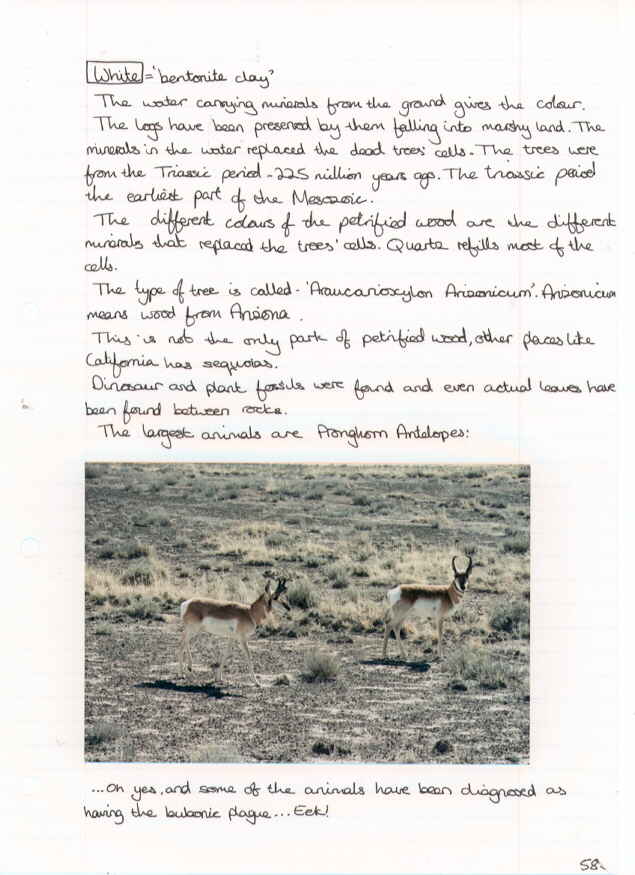 White = 'bentonite clay'
The water carrying minerals from the ground gives the colour.
The logs have been preserved by them falling into marshy land. The
minerals in the water replaced the dead trees' cells. The trees were
from the Triassic period - 225 million years ago. The triassic period
the earliest part of the Mesozoic.
The different colours of the petrified wood are the different
minerals that replaced the trees' cells. Quartz refills most of the
cells.
The type of tree is called - 'Araucarioxylon Arizonicum'. Arizonicum
means wood from Arizona.
This is not the only park of petrified wood, other places like
California has sequoias.
Dinosaur and plant fossils were found and even actual leaves have
been found between rocks.
The largest animals are Pronghorn Antelopes:
...Oh yes, and some of the animals have been diagnosed as
having the bubonic plague... Eek!
58